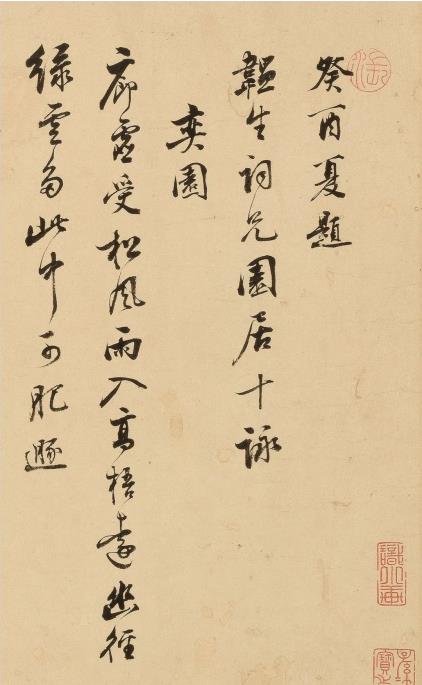 癸酉夏題
韞生詞兄園居十詠
奕園
廊虛受松風雨入高梧遠幽徑
綠雲多此中可肥遯